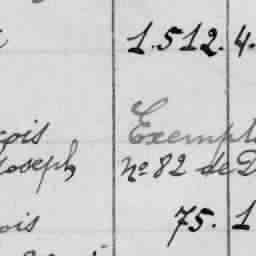 1.512. 4.
çois Exempt
Joseph nº 82 de D
ois 75. 1